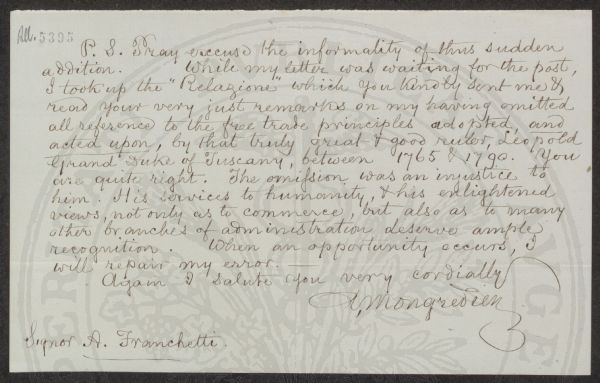 All. 5395
P. S. Pray excuse the informality of this sudden
addition. While my letter was waiting for the post,
I took up the "Relazione which you kindly sent me &
read your very just remarks on my having omitted
all reference to the free trade principles adopted and
acted upon, by that truly great & good ruler, Leopold
Grand Duke of Tuscany, between 1765 & 1790. You
are quite right. The omission was an injustice to
him. His services to humanity, & his enlightened
views, not only as to commerce, but also as to many
other branches of administration deserve ample
recognition. When an opportunity occurs, I
will repair my error. —
Again I salute you very cordially
A. Mongredien
Signor A. Franchetti.